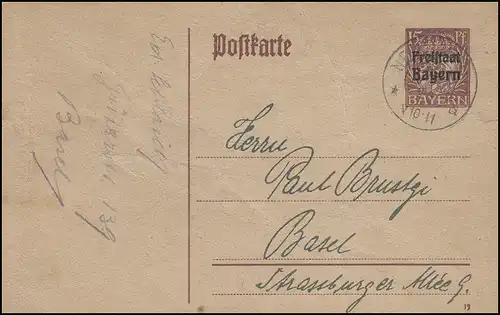 Postkarte
15 Pf
Freistaat
Bayern
BAYERN
V 10-11
Herrn
Paul Brustgi
Basel
Strassburger Allée 9.
19
139
Basel